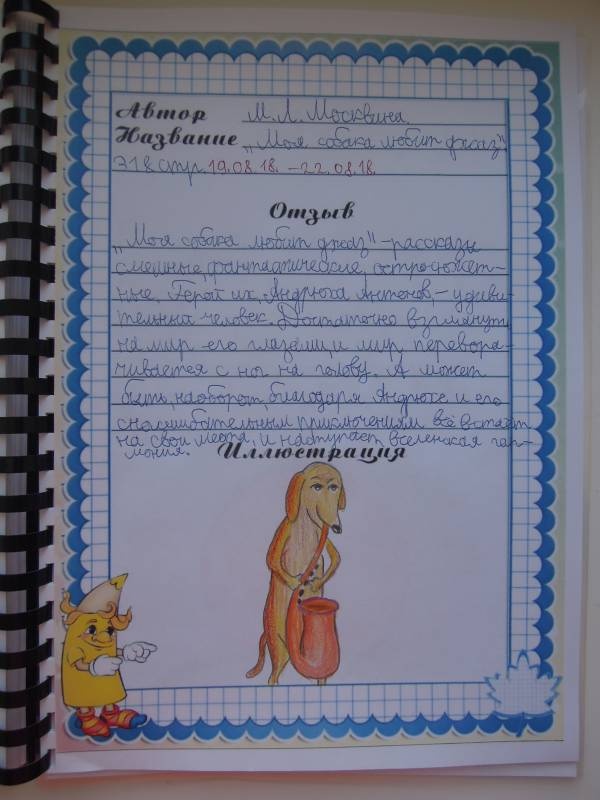 Автор М.Л. Москвина.
Название „Моя собака любит джаз“.
318 стр. 19.08.18. – 22.08.18.
Отзыв
„Моя собака любит джаз“ – рассказы
смешные, фантастические, остросюжет-
ные. Герой их, Андрюха Антонов, – удиви-
тельный человек. Достаточно взглянуть
на мир его глазами, и мир перевора-
чивается с ног на голову. А может
быть, наоборот, благодаря Андрюхе и его
сногсшибательным приключениям всё встаёт
на свои места, и наступает вселенская гар-
мония.
Иллюстрация